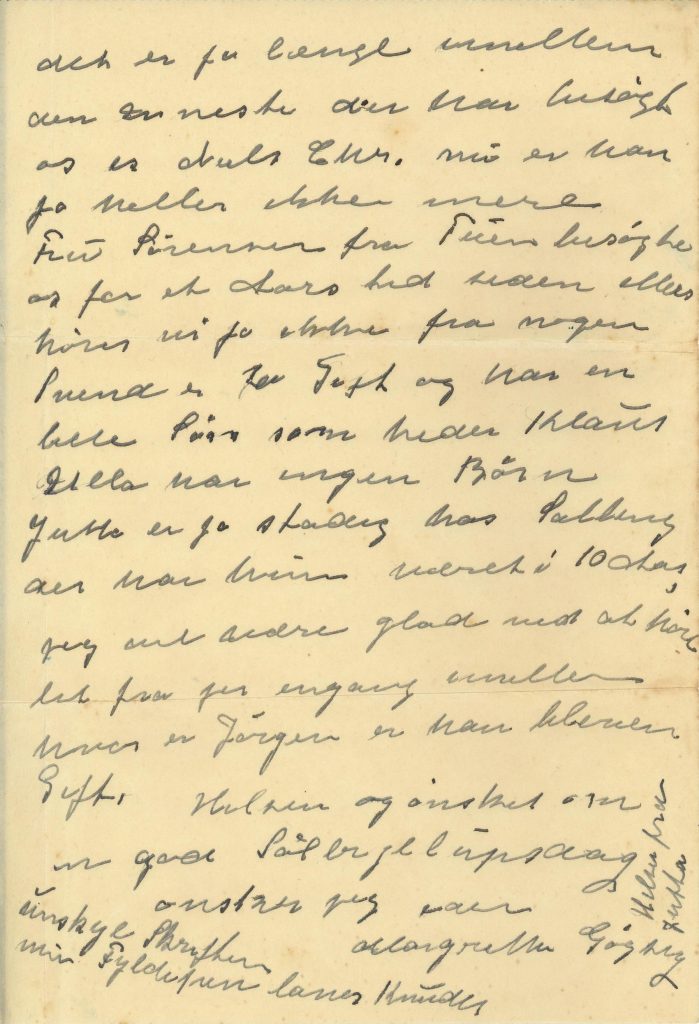 det er jo længe imellem
den eneste der har besøgt
os er Niels Chr. nu er han
jo heller ikke mere
Frū Sørensen fra Tūen besøgte
os for et Aars tid siden ellers
hører vi jo ikke fra nogen
Svend er Gift og har en
lille Søn som heder Klaūs
Ella har ingen Börn
Jutta er jo stadig hos Salling
der har hūn været i 10 Aar,
jeg vil være glad ved at höre
lit fra jer engang imellem
hvor er Jörgen er han bleven
Gift. Hilsen og önsket om
en god Sölbryllūpsdag
önsker jeg eder
Margrethe
Hilsen fra Jutta
ūnskyl Skriften
min Fyldepen